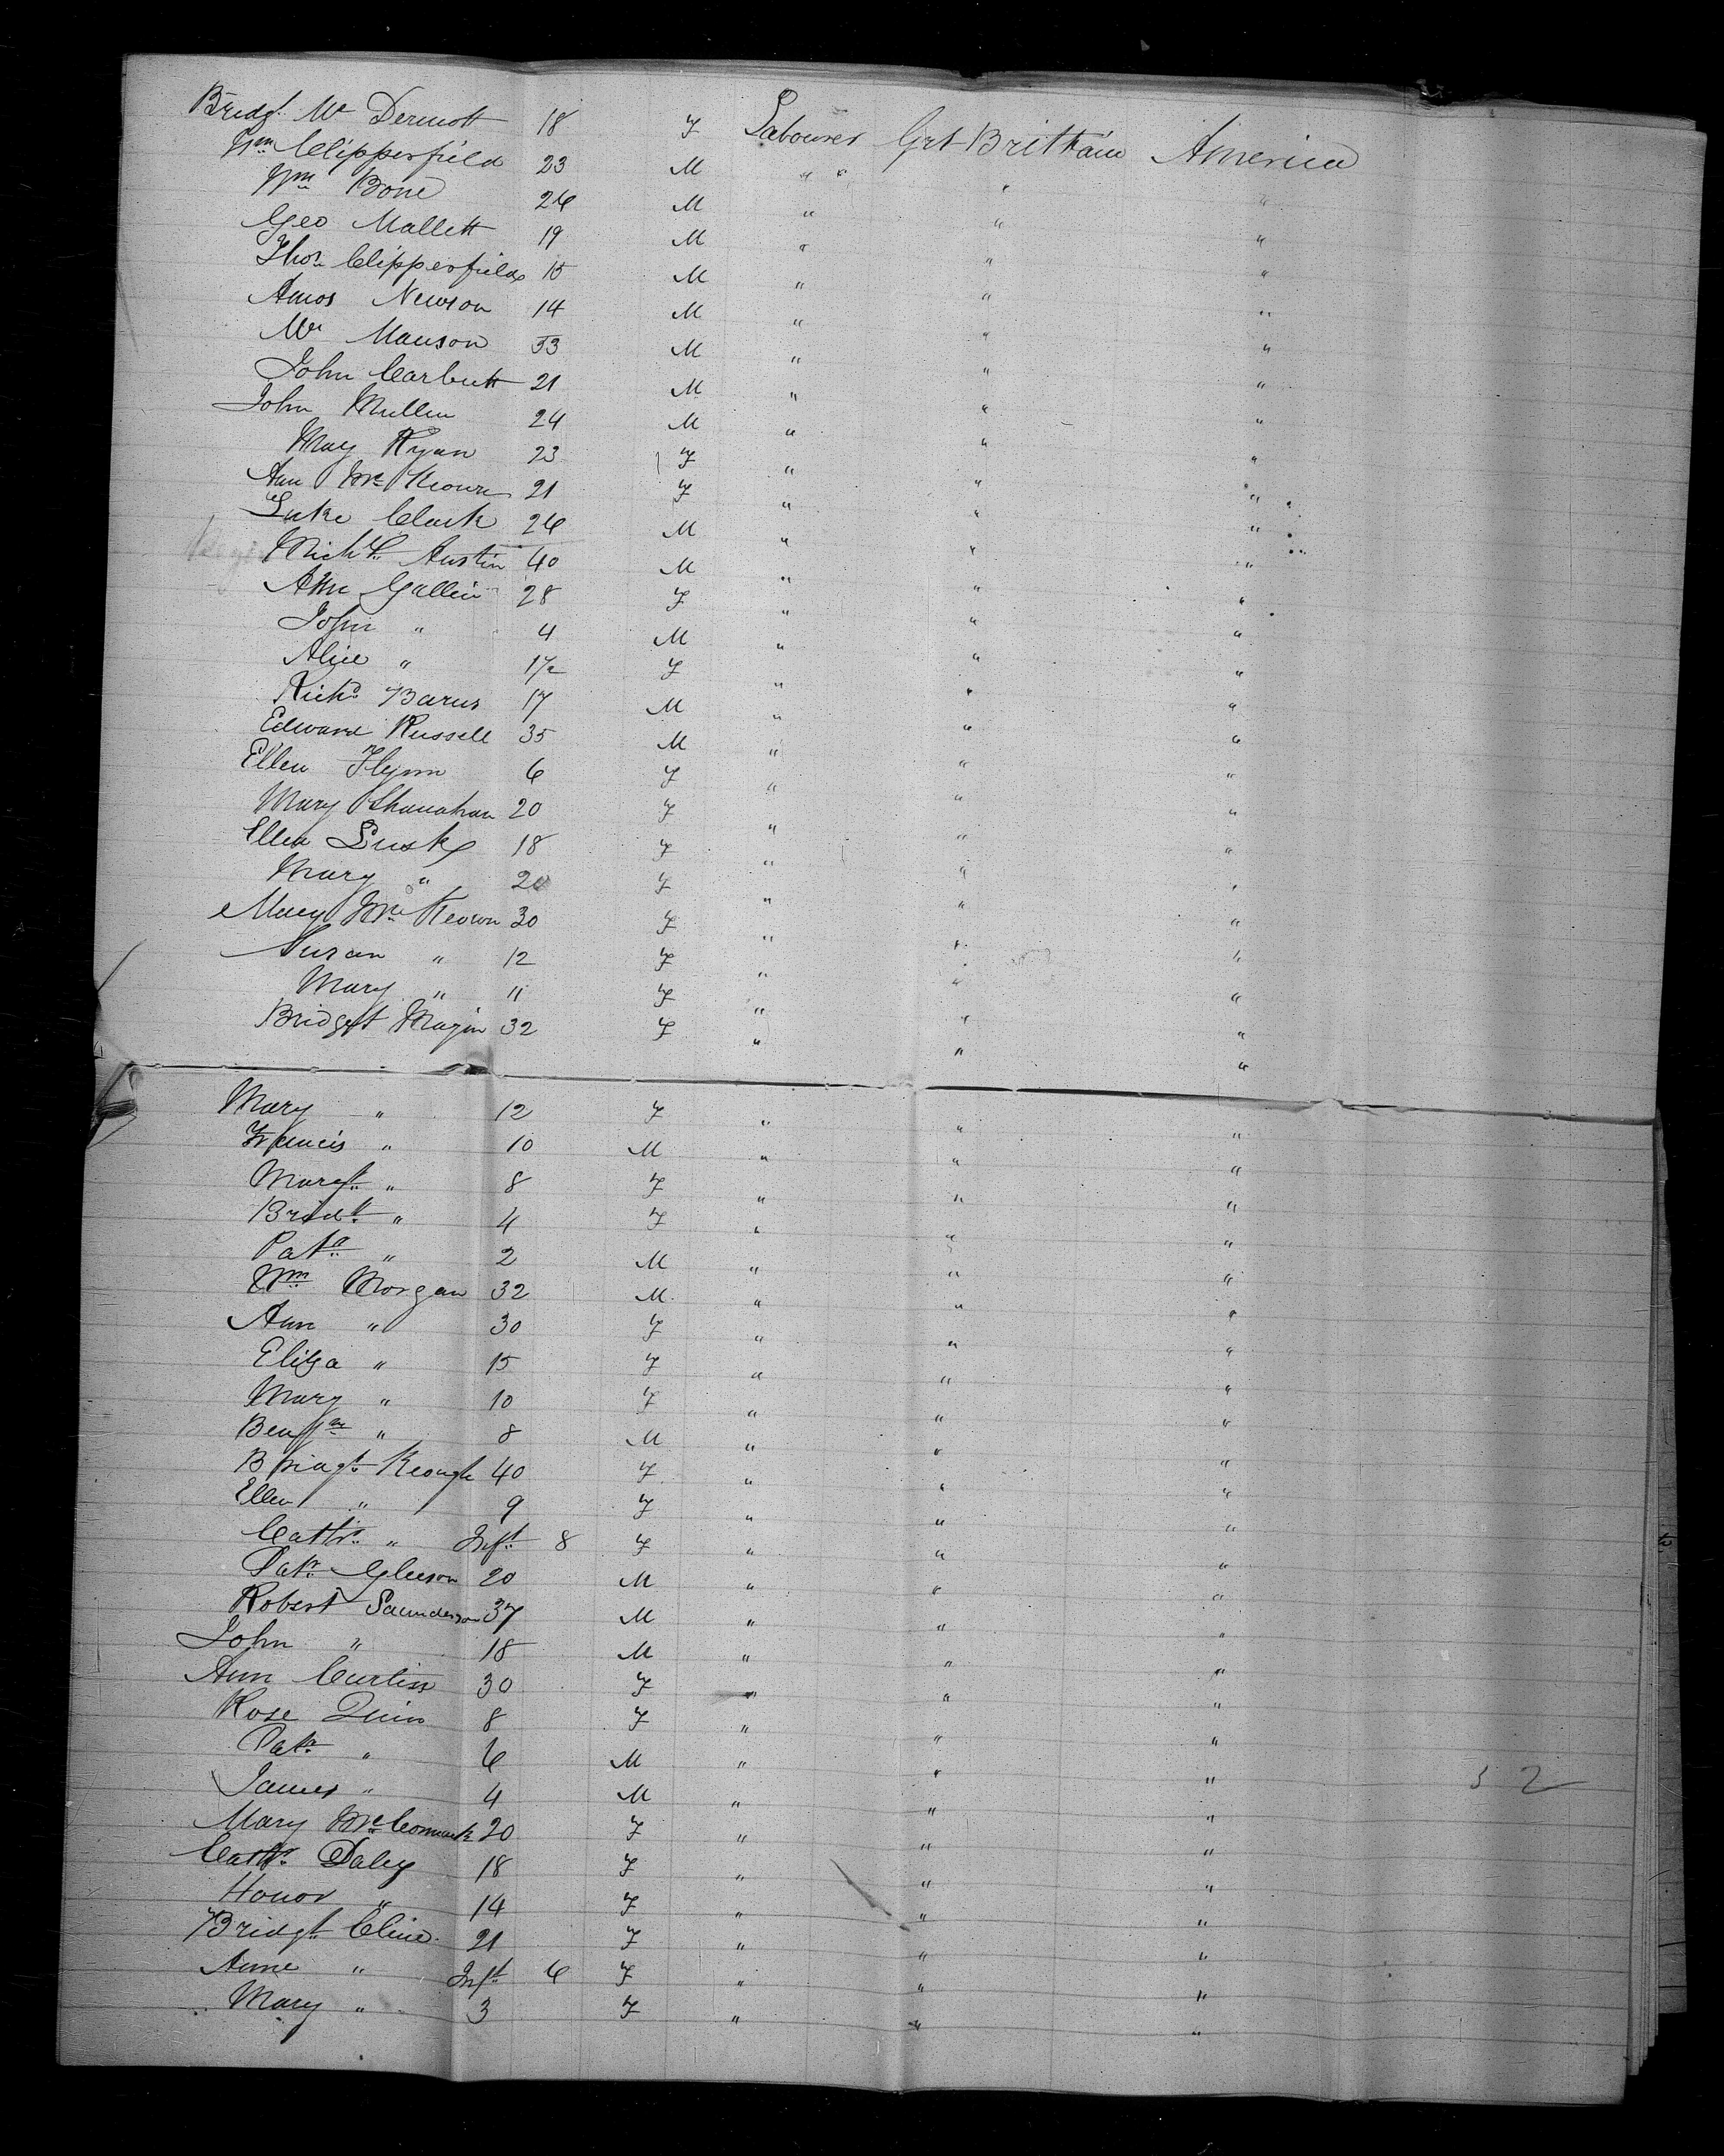 Bridgt. Mc Dermott 18 F Labourer Grt Brittain America
Wm Clipperfield 23 M " " "
Wm Bone 26 M " " "
Geo Mallett 19 M " " "
Thos. Clipperfield 15 M " " "
Amos Newson 14 M " " "
Mr Manson 53 M " " "
John Carbutt 21 M " " "
John Mullen 24 M " " "
Mary Ryan 23 F " " "
Ann Mc Keown 21 F " " "
Luke Clark 26 M " " "
Michl. Austin 40 M " " "
Ann Gallein 28 F " " "
John " 4 M " " "
Alice " 1½ F " " "
Richd. Barns 17 M " " "
Edward Russell 35 M " " "
Ellen Flynn 6 F " " "
Mary Shanahan 20 F " " "
Ellen Lusk 18 F " " "
Mary " 20 F " " "
Mary Mc Keown 30 F " " "
Susan " 12 F " " "
Mary " 11 F " " "
Bridget Magin 32 F " " "
Mary " 12 F " " "
Francis " 10 M " " "
Margt. " 8 F " " "
Bridt. " 4 F " " "
Patk. " 2 M " " "
Wm Morgan 32 M " " "
Ann " 30 F " " "
Eliza " 15 F " " "
Mary " 10 F " " "
Benjn. " 8 M " " "
Bridgt. Keough 40 F " " "
Ellen " 9 F " " "
Cathr. " Inft. 8 F " " "
Patk. Gleeson 20 M " " "
Robert Saunderson 37 M " " "
John " 18 M " " "
Ann Curliss 30 F " " "
Rose Quin 8 F " " "
Patk. " 6 M " " "
James " 4 M " " "
Mary Mc Cormack 20 F " " "
Cathr. Daley 18 F " " "
Honor " 14 F " " "
Bridgt. Cline 21 F " " "
Anne " Inft. 6 F " " "
Mary " 3 F " " "